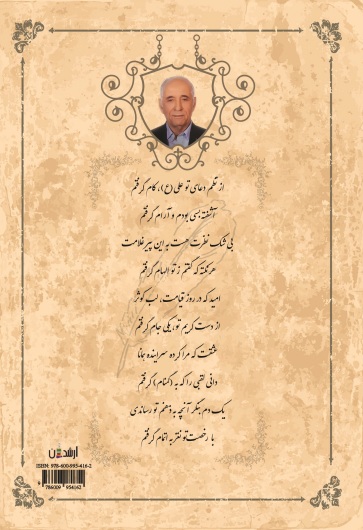 از نظم دعای تو علی (ع)، کام گرفتم
آشفته بسی بودم و آرام گرفتم
بی شک نظرت هست به این پیر غلامت
هر نکته که گفتم ز تو الهام گرفتم
امید که در روز قیامت، لب کوثر
از دست کریم تو، یکی جام گرفتم
عشقت که مرا کرده سراینده جانا
دانی لقبی را که به (گمنام) گرفتم
یک دم بنگر آنچه به ذهنم تو رساندی
با رخصت تو نقربه اتمام گرفتم
ارشدان
ISBN: 978-600-895-416-2
9 786008 954162